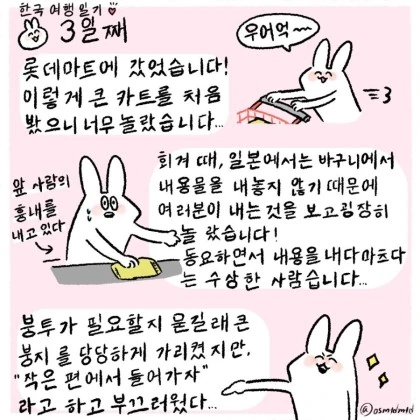 한국 여행 일기
3일째
우어억~~
롯데마트에 갔었습니다!
이렇게 큰 카트를 처음
봤으니 너무 놀랐습니다...
=3
회겨 때, 일본에서는 바구니에서
내용물을 내놓지 않기 때문에
여러분이 내는 것을 보고 굉장히
놀랐습니다!
동요하면서 내용을 내다 마초다
는 수상한 사람습니다...
앞 사람의
흉내를
내고 있다
봉투가 필요할지 묻길래 큰
봉지를 당당하게 가리켰지만,
"작은 편에서 들어가자"
라고 하고 부끄러웠다...
@osmkdmkd